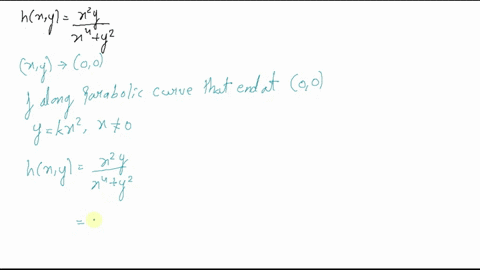 h(x,y) = x²y / x⁴+y²
(x,y) → (0,0)
f along Parabolic curve that end at (0,0)
y = kx², x ≠ 0
h(x,y) = x²y / x⁴+y²
=